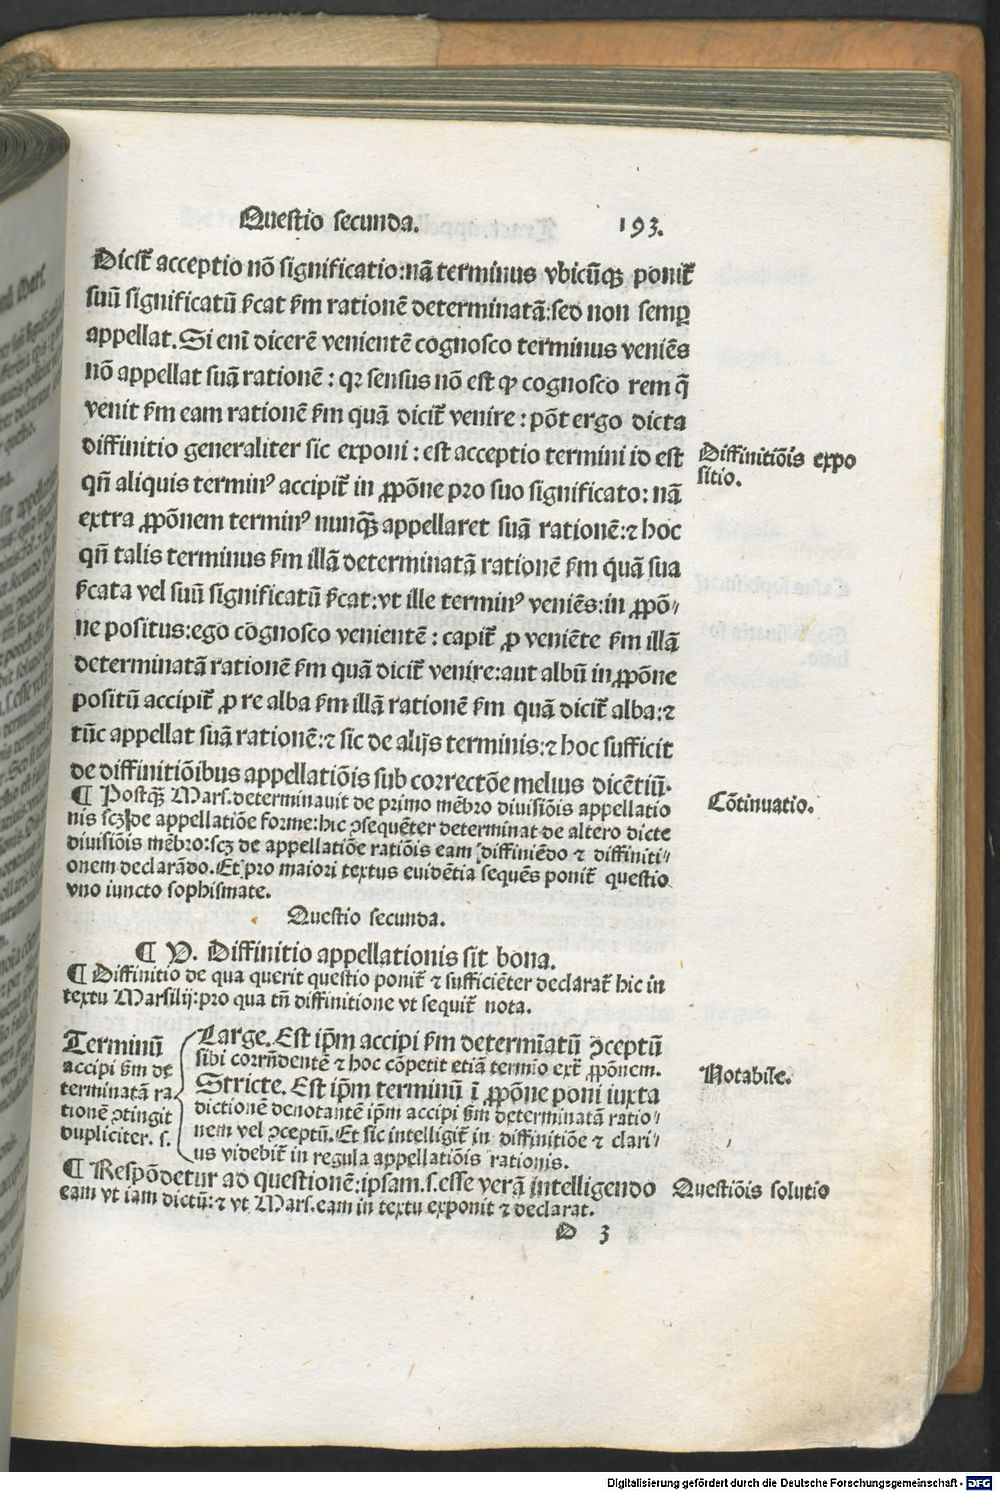 Questio secunda. 193.
Dicit̃ acceptio nõ significatio:nã terminus vbicũqꝫ ponit̃
suũ significatũ ſ̃cat ſ̃m rationẽ determinatã:sed non semꝑ
appellat. Si eni̅ dicerẽ venientẽ cognosco terminus veniẽs
nõ appellat suã rationẽ: qꝛ sensus nõ est ꝙ cognosco rem q̃
venit ſ̃m eam rationẽ ſ̃m quã dicit̃ venire: põt ergo dicta
diffinitio generaliter sic exponi: est acceptio termini id est
qñ aliquis terminꝰ accipit̃ in ꝓpõne pro suo significato: nã
extra ꝓpõnem terminꝰ nunqꝫ̃ appellaret suã rationẽ:⁊ hoc
qñ talis terminus ſ̃m illã determinatã rationẽ ſ̃m quã sua
ſ̃cata vel suũ significatũ ſ̃cat:vt ille terminꝰ veniẽs:in ꝓpõ⸗
ne positus:ego cognosco venientẽ: capit̃ ꝓ veniẽte ſ̃m illã
determinatã rationẽ ſ̃m quã dicit̃ venire:aut albũ in ꝓpõne
positũ accipit̃ ꝓ re alba ſ̃m illã rationẽ ſ̃m quã dicit̃ alba:⁊
tũc appellat suã rationẽ:⁊ sic de alijs terminis:⁊ hoc sufficit
de diffinitiõibus appellatiõis sub correctõe melius dicẽtiũ.
¶ Postqꝫ̃ Mars.determinauit de primo mẽbro diuisiõis appellatio
nis scꝫ de appellatiõe forme:hic ꝯsequẽter determinat de altero dicte
diuisiõis mẽbro:scꝫ de appellatiõe ratiõis eam diffiniẽdo ⁊ diffiniti⸗
onem declarãdo. Et pro maiori textus euidẽtia sequẽs ponit̃ questio
vno iuncto sophismate.
Questio secunda.
¶ V. Diffinitio appellationis sit bona.
¶ Diffinitio de qua querit questio ponit̃ ⁊ sufficiẽter declarat̃ hic in
textu Marsilij:pro qua tñ diffinitione vt sequit̃ nota.
Terminũ
accipi ſ̃m de
terminatã ra
tionẽ ꝯtingit
dupliciter. s.
Large. Est ip̃m accipi ſ̃m determĩatũ ꝯceptũ
sibi corrñdentẽ ⁊ hoc cõpetit etiã termĩo ext̃ ꝓpõnem.
Stricte. Est ip̃m terminũ ĩ ꝓpõne poni iuxta
dictionẽ denotantẽ ip̃m accipi ſ̃m determinatã ratio⸗
nem vel ꝯceptũ. Et sic intelligit̃ in diffinitiõe ⁊ clari⸗
us videbit̃ in regula appellatiõis rationis.
¶ Respõdetur ad questionẽ:ipsam.s.esse verã intelligendo
eam vt iam dictũ:⁊ vt Mars.eam in textu exponit ⁊ declarat.
D 3
Diffinitiõis expo
sitio.
Cõtinuatio.
Notabile.
Questiõis solutio
Digitalisierung gefördert durch die Deutsche Forschungsgemeinschaft - DFG